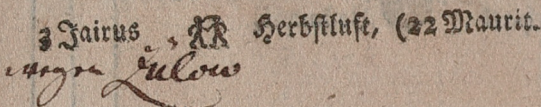 3 Jairus Herbstluft, (22 Maurit.
wegen Zulow